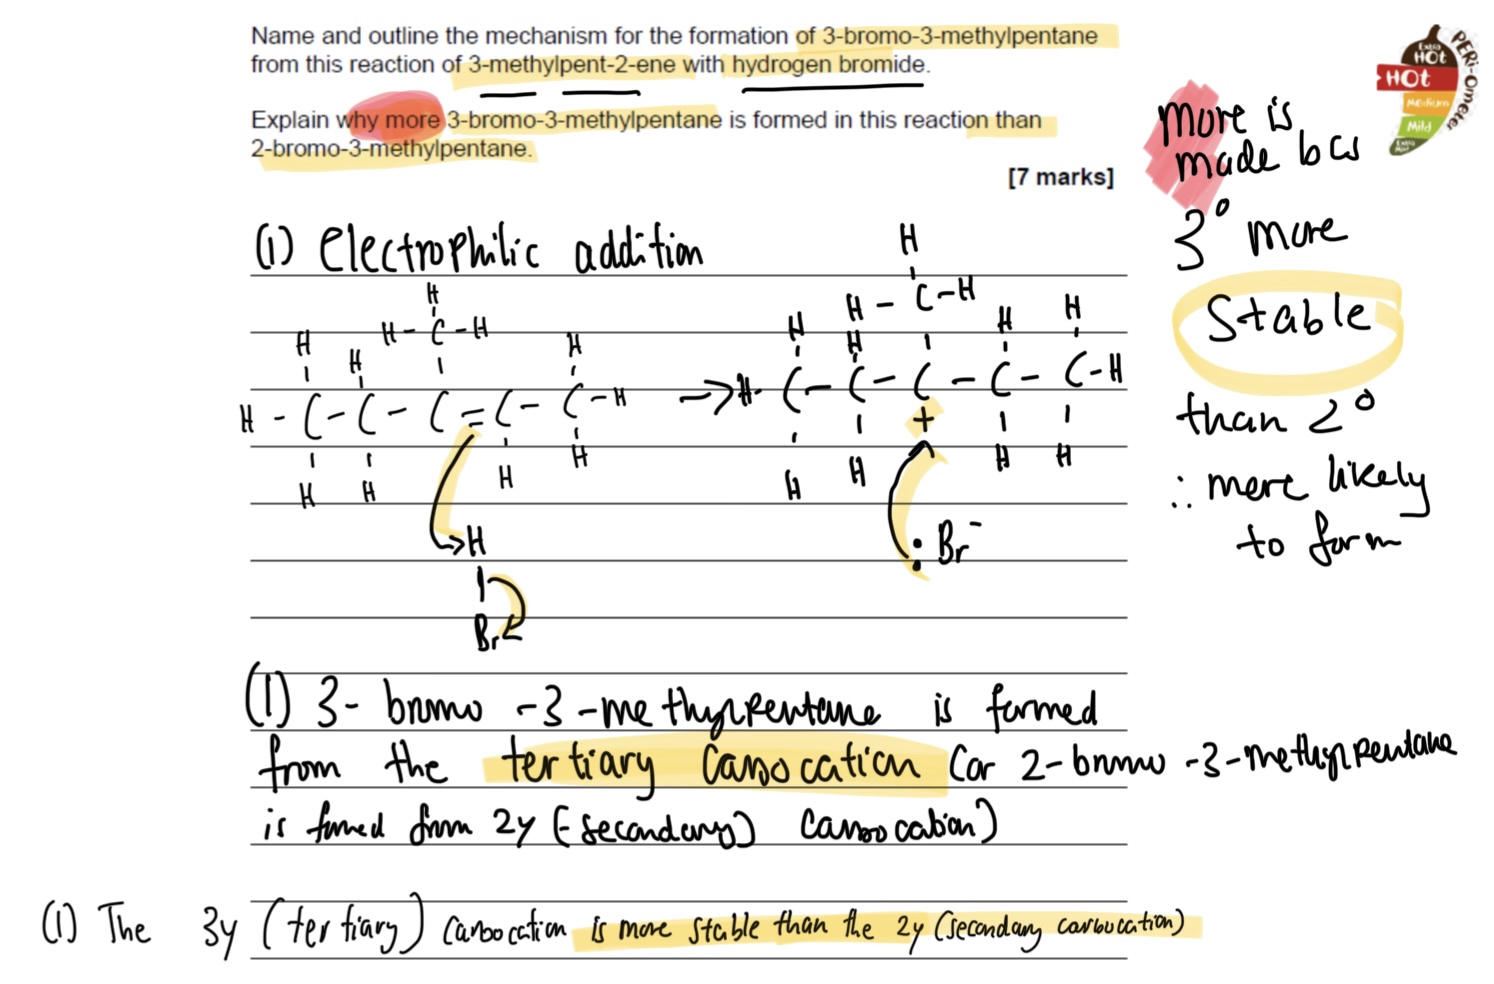 Name and outline the mechanism for the formation of 3-bromo-3-methylpentane
from this reaction of 3-methylpent-2-ene with hydrogen bromide.
Explain why more 3-bromo-3-methylpentane is formed in this reaction than
2-bromo-3-methylpentane.
[7 marks]
PERi-Ometer
Extra HOt
HOt
Medium
Mild
more is
made bcs
3° more
Stable
than 2°
∴ more likely
to form
(1) Electrophilic addition
H
H - C - H
H H H
H - C - C - C = C - C - H
H H H H
H
Br
H
H - C - H
H H H H
→ H - C - C - C - C - C - H
+
H H H H
: Br⁻
(1) 3- bromo -3-methylpentane is formed
from the tertiary carbocation (or 2-bromo -3-methylpentane
is formed from 2y (-secondary) carbocation)
(1) The 3y (tertiary) carbocation is more stable than the 2y (secondary carbocation)